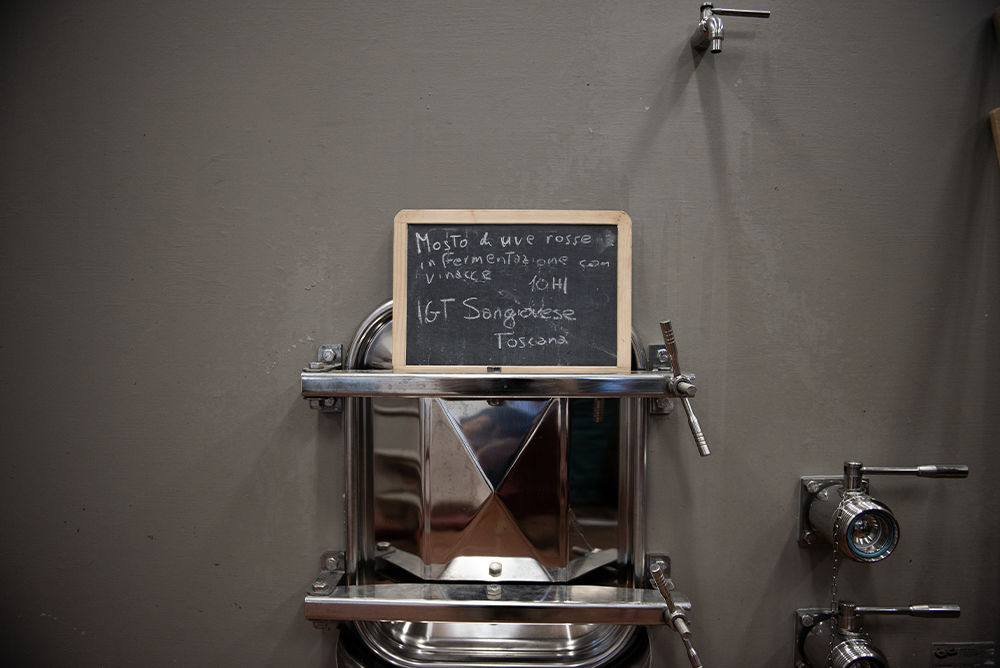 Mosto di uve rosse
in fermentazione con
vinacce
10Hl
IGT Sangiovese
Toscana